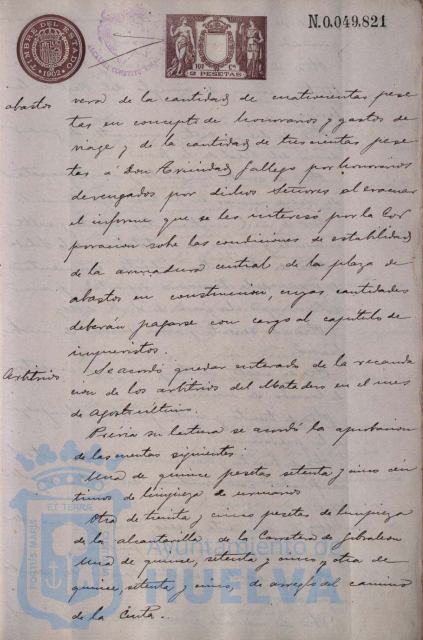 N.0.049.821
TIMBRE DEL ESTADO
1902
2 PESETAS
abastos
vera de la cantidad de cuatrocientas pese
tas en concepto de honorarios y gastos de
viage y de la cantidad de trescientas pese
tas a Don Trinidad Gallego por honorarios
devengados por dichos Señores al evacuar
el informe que se les interesó por la Cor
poracion sobre las condiciones de estabilidad
de la armadura central de la plaza de
abastos en construccion, cuyas cantidades
deberán pagarse con cargo al capitulo de
imprevistos.
Arbitrios
Se acordó quedar enterado de la recauda
cion de los arbitrios del Matadero en el mes
de Agosto último.
Prévia su lectura se acordó la aprobacion
de las cuentas siguientes:
Una de quince pesetas setenta y cinco cén
timos de limpieza de urinarios
Otra de treinta y cinco pesetas de limpieza
de la alcantarilla de la Carretera de Gibraleon
Una de quince, setenta y cinco y otra de
quince, setenta y cinco, de arreglo del camino
de la Cinta.
PORTUS MARIS
ET TERRAE
Ayuntamiento de
HUELVA